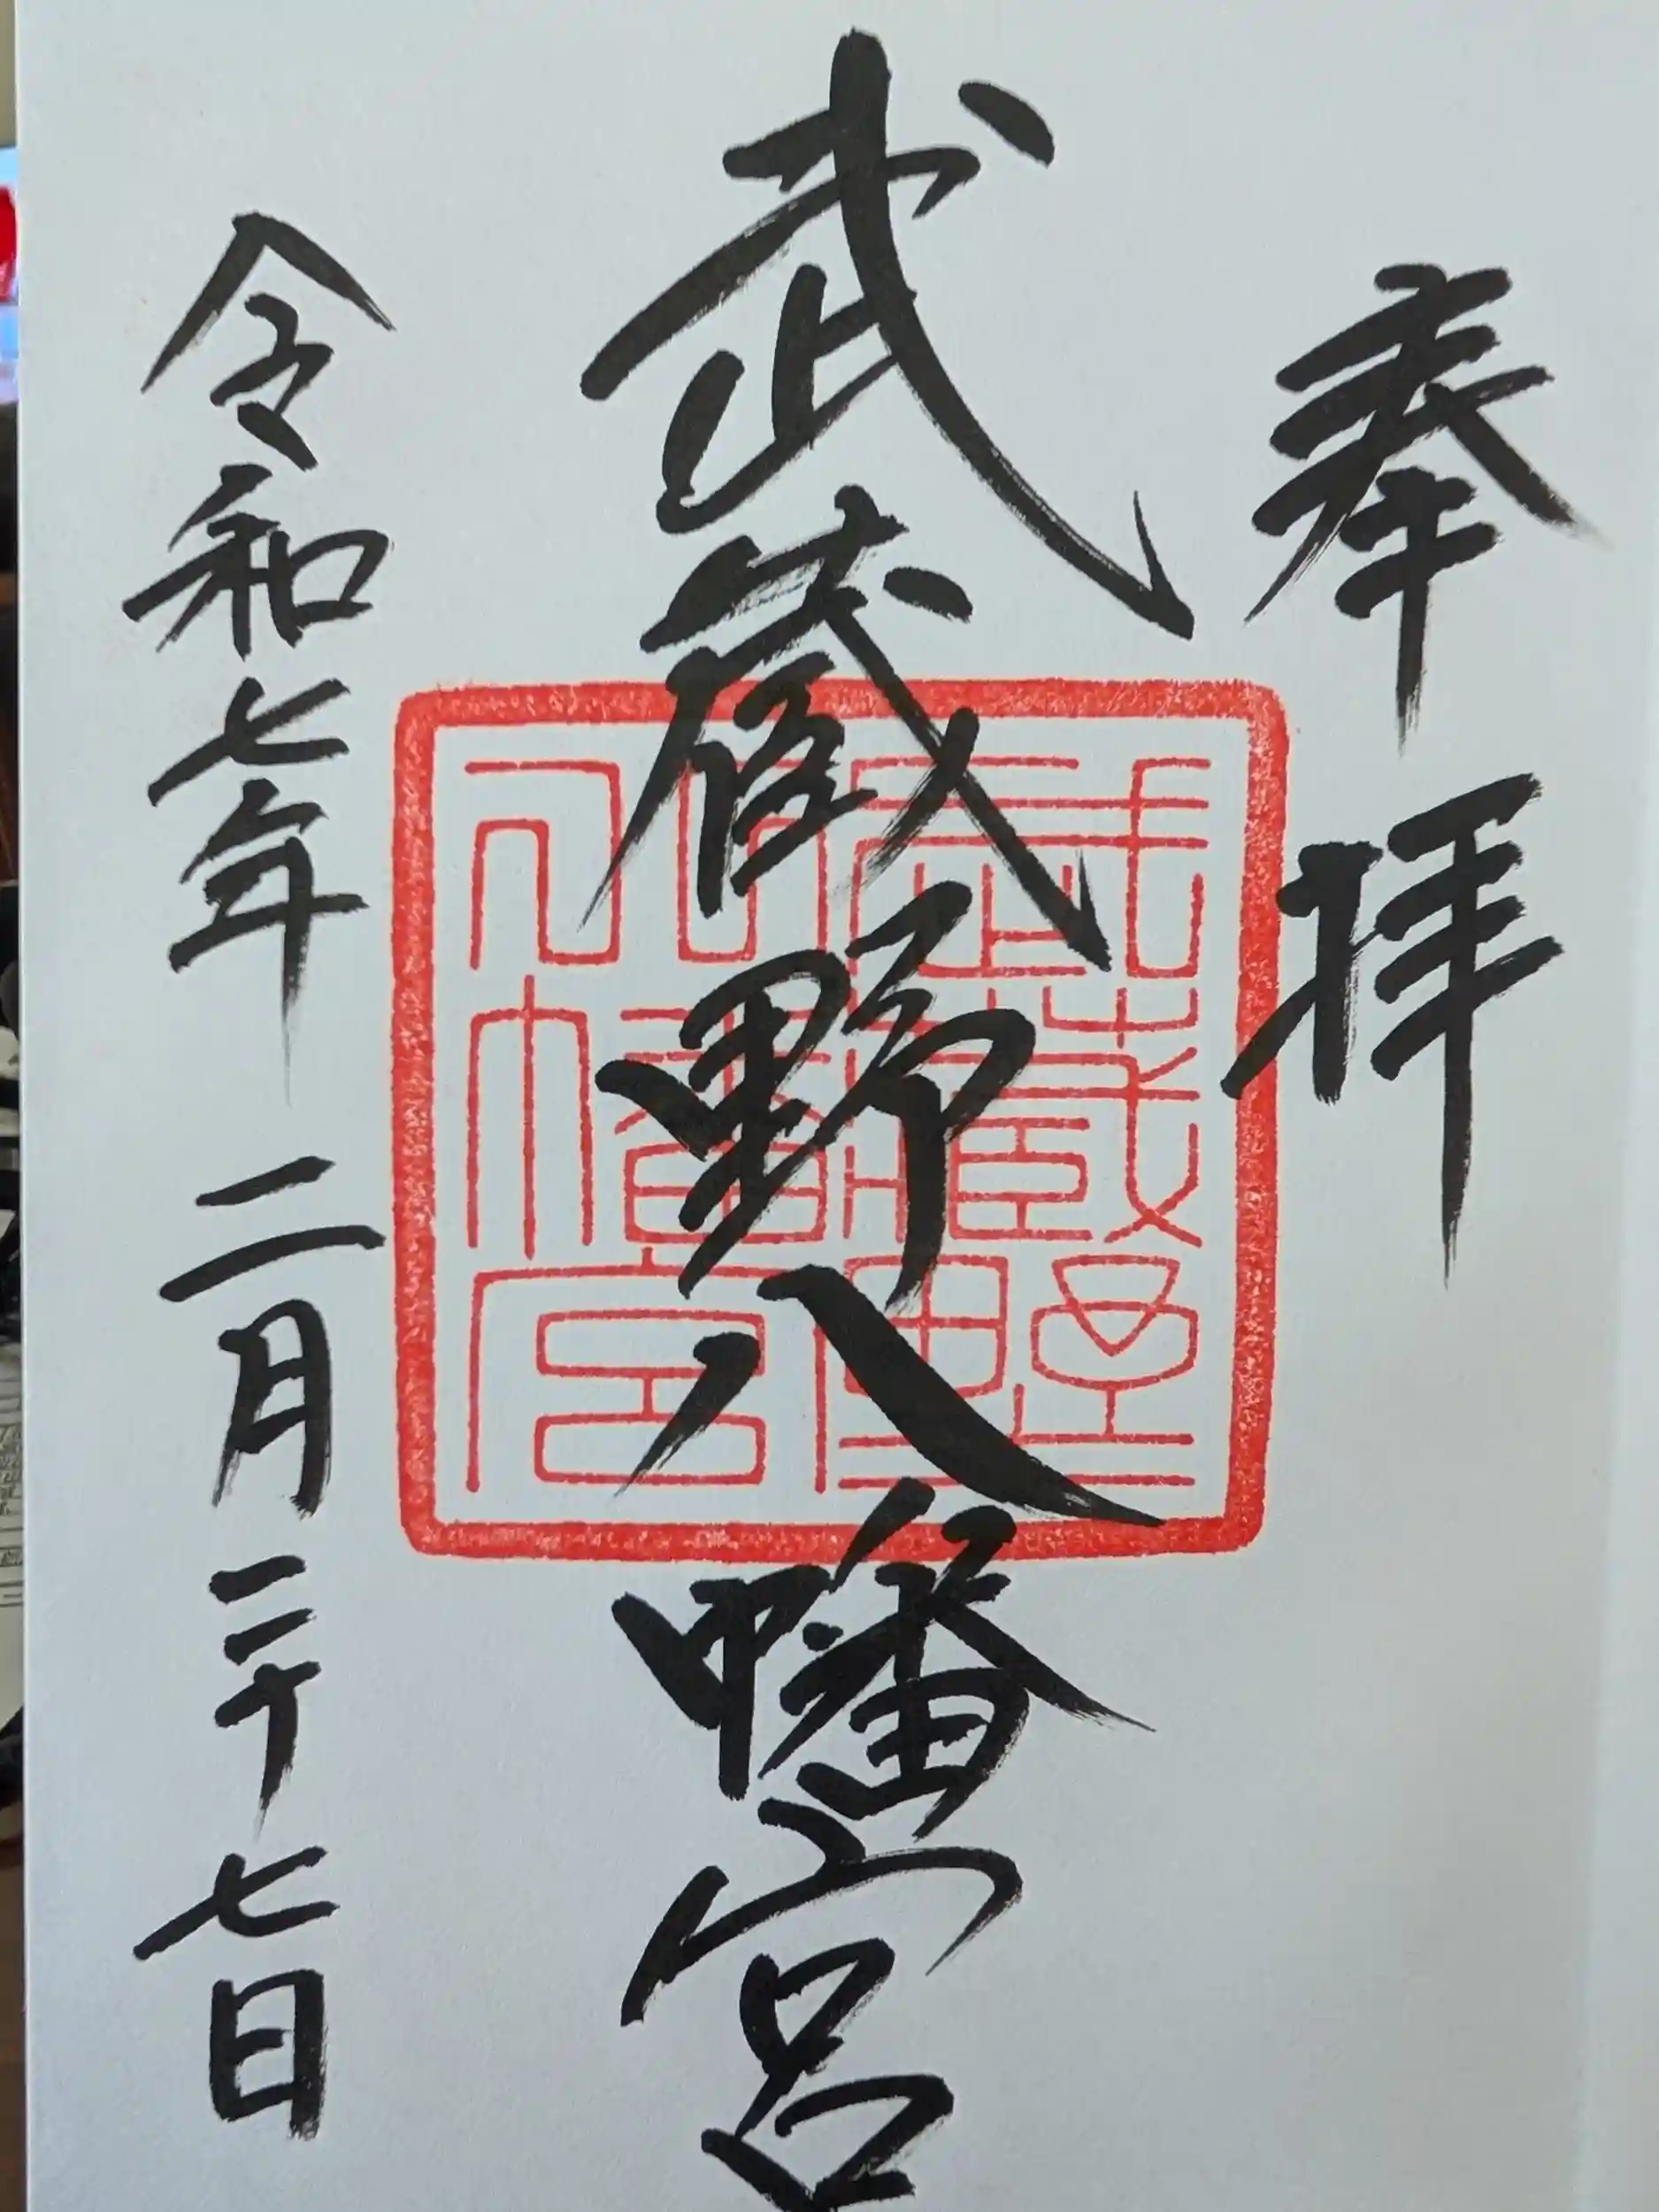 奉拝
武蔵野八幡宮
武蔵野八幡宮
令和七年二月二十七日